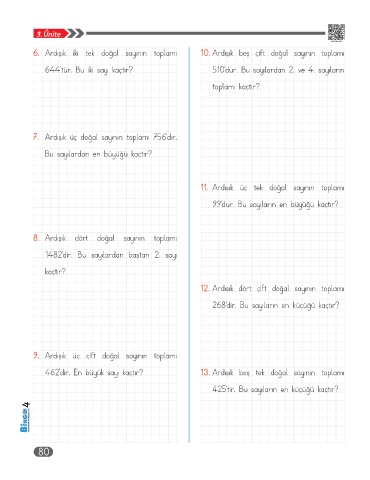 3. Ünite
6. Ardışık iki tek doğal sayının toplamı
644'tür. Bu iki sayı kaçtır?
7. Ardışık üç doğal sayının toplamı 756'dır.
Bu sayılardan en büyüğü kaçtır?
8. Ardışık dört doğal sayının toplamı
1482'dir. Bu sayılardan baştan 2. sayı
kaçtır?
9. Ardışık üç çift doğal sayının toplamı
462'dir. En büyük sayı kaçtır?
10. Ardışık beş çift doğal sayının toplamı
510'dur. Bu sayılardan 2. ve 4. sayıların
toplamı kaçtır?
11. Ardışık üç tek doğal sayının toplamı
99'dur. Bu sayıların en büyüğü kaçtır?
12. Ardışık dört çift doğal sayının toplamı
268'dir. Bu sayıların en küçüğü kaçtır?
13. Ardışık beş tek doğal sayının toplamı
425'tir. Bu sayıların en küçüğü kaçtır?
BİNGO 4
80